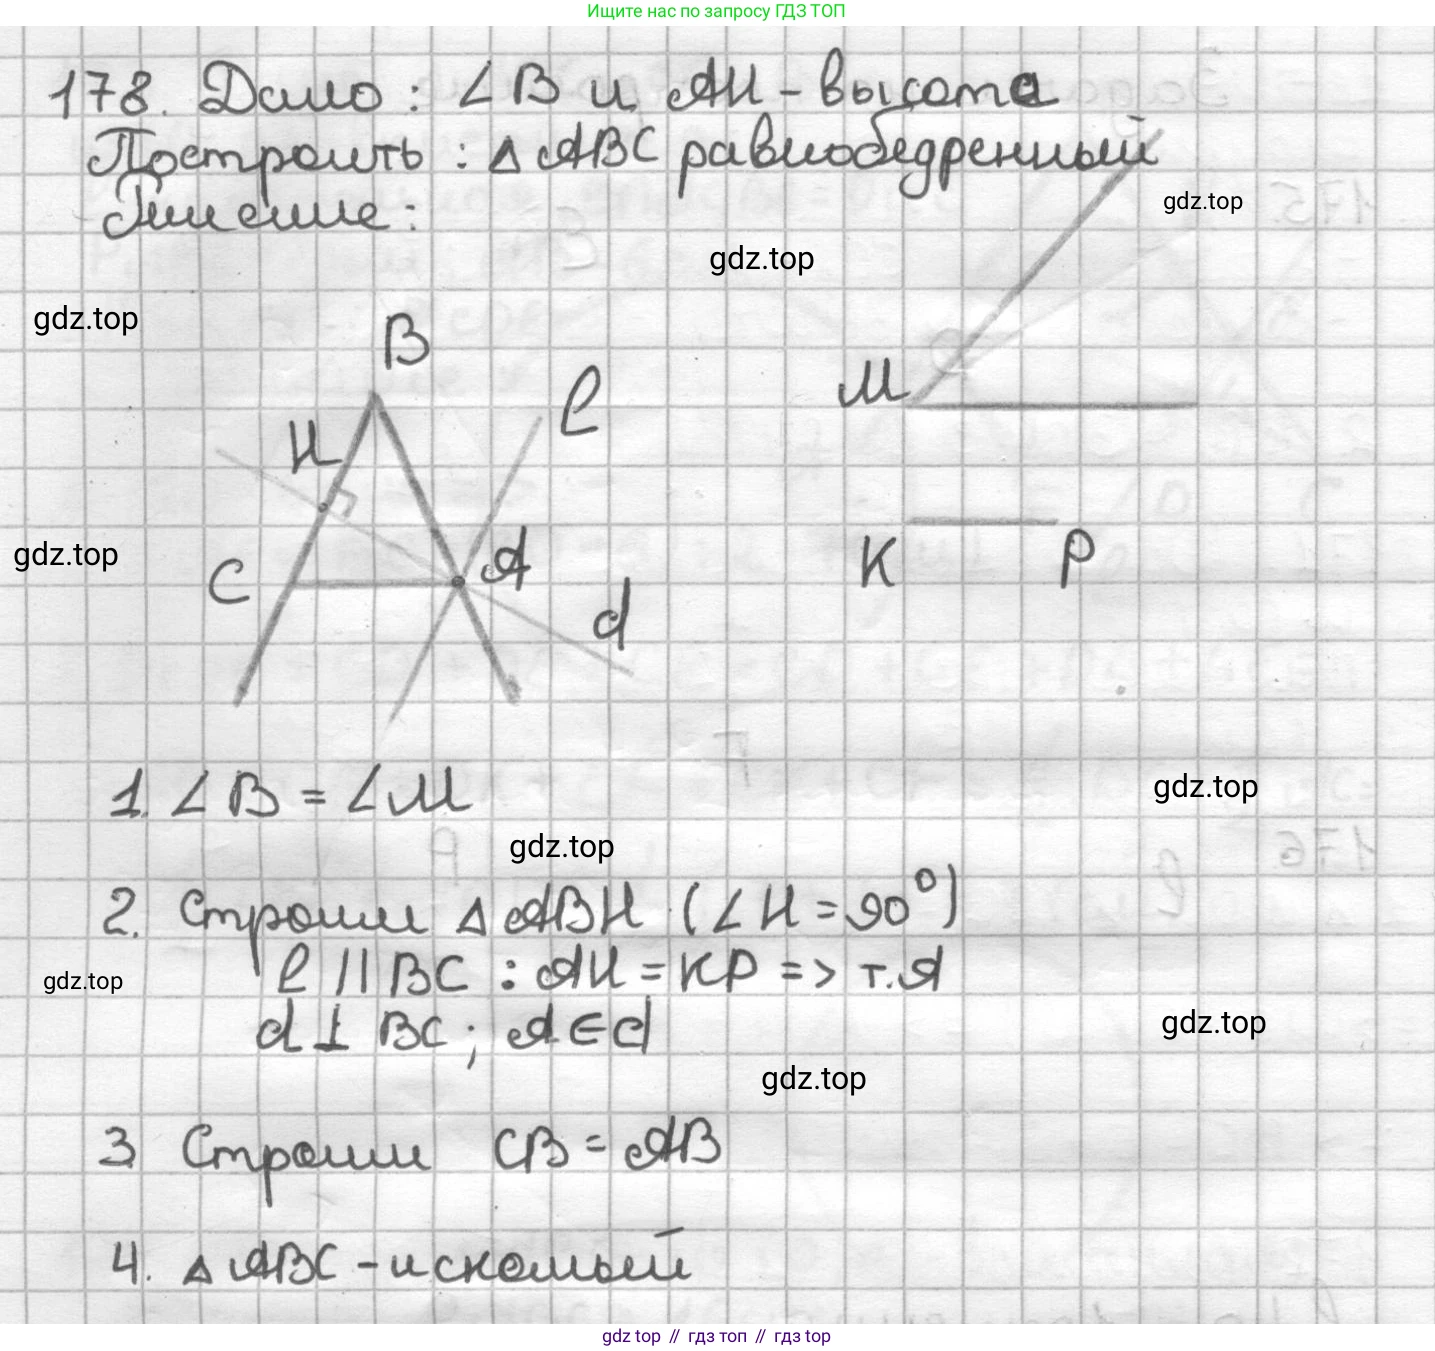 Ищите нас по запросу ГДЗ ТОП
178. Дано: ∠B и AH - высота
Построить: △ ABC равнобедренный
gdz.top
Решение:
gdz.top
gdz.top
B
l
M
H
gdz.top
C
A
K
P
d
1. ∠B = ∠M
gdz.top
gdz.top
2. Строим △ ABH (∠H = 90°)
l || BC : AH = KP => т.А
gdz.top
d ⊥ BC; A ∈ d
gdz.top
gdz.top
3 Строим CB = AB
4. △ ABC - искомый
gdz top // гдз топ // гдз top